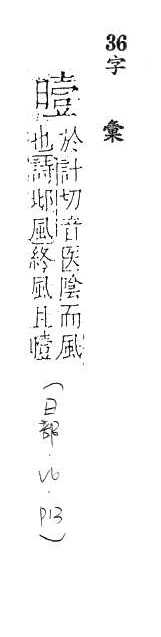 36字 彙
曀
於計切音医陰而風
也詩邶風終風且曀
(日部·V6·P13)